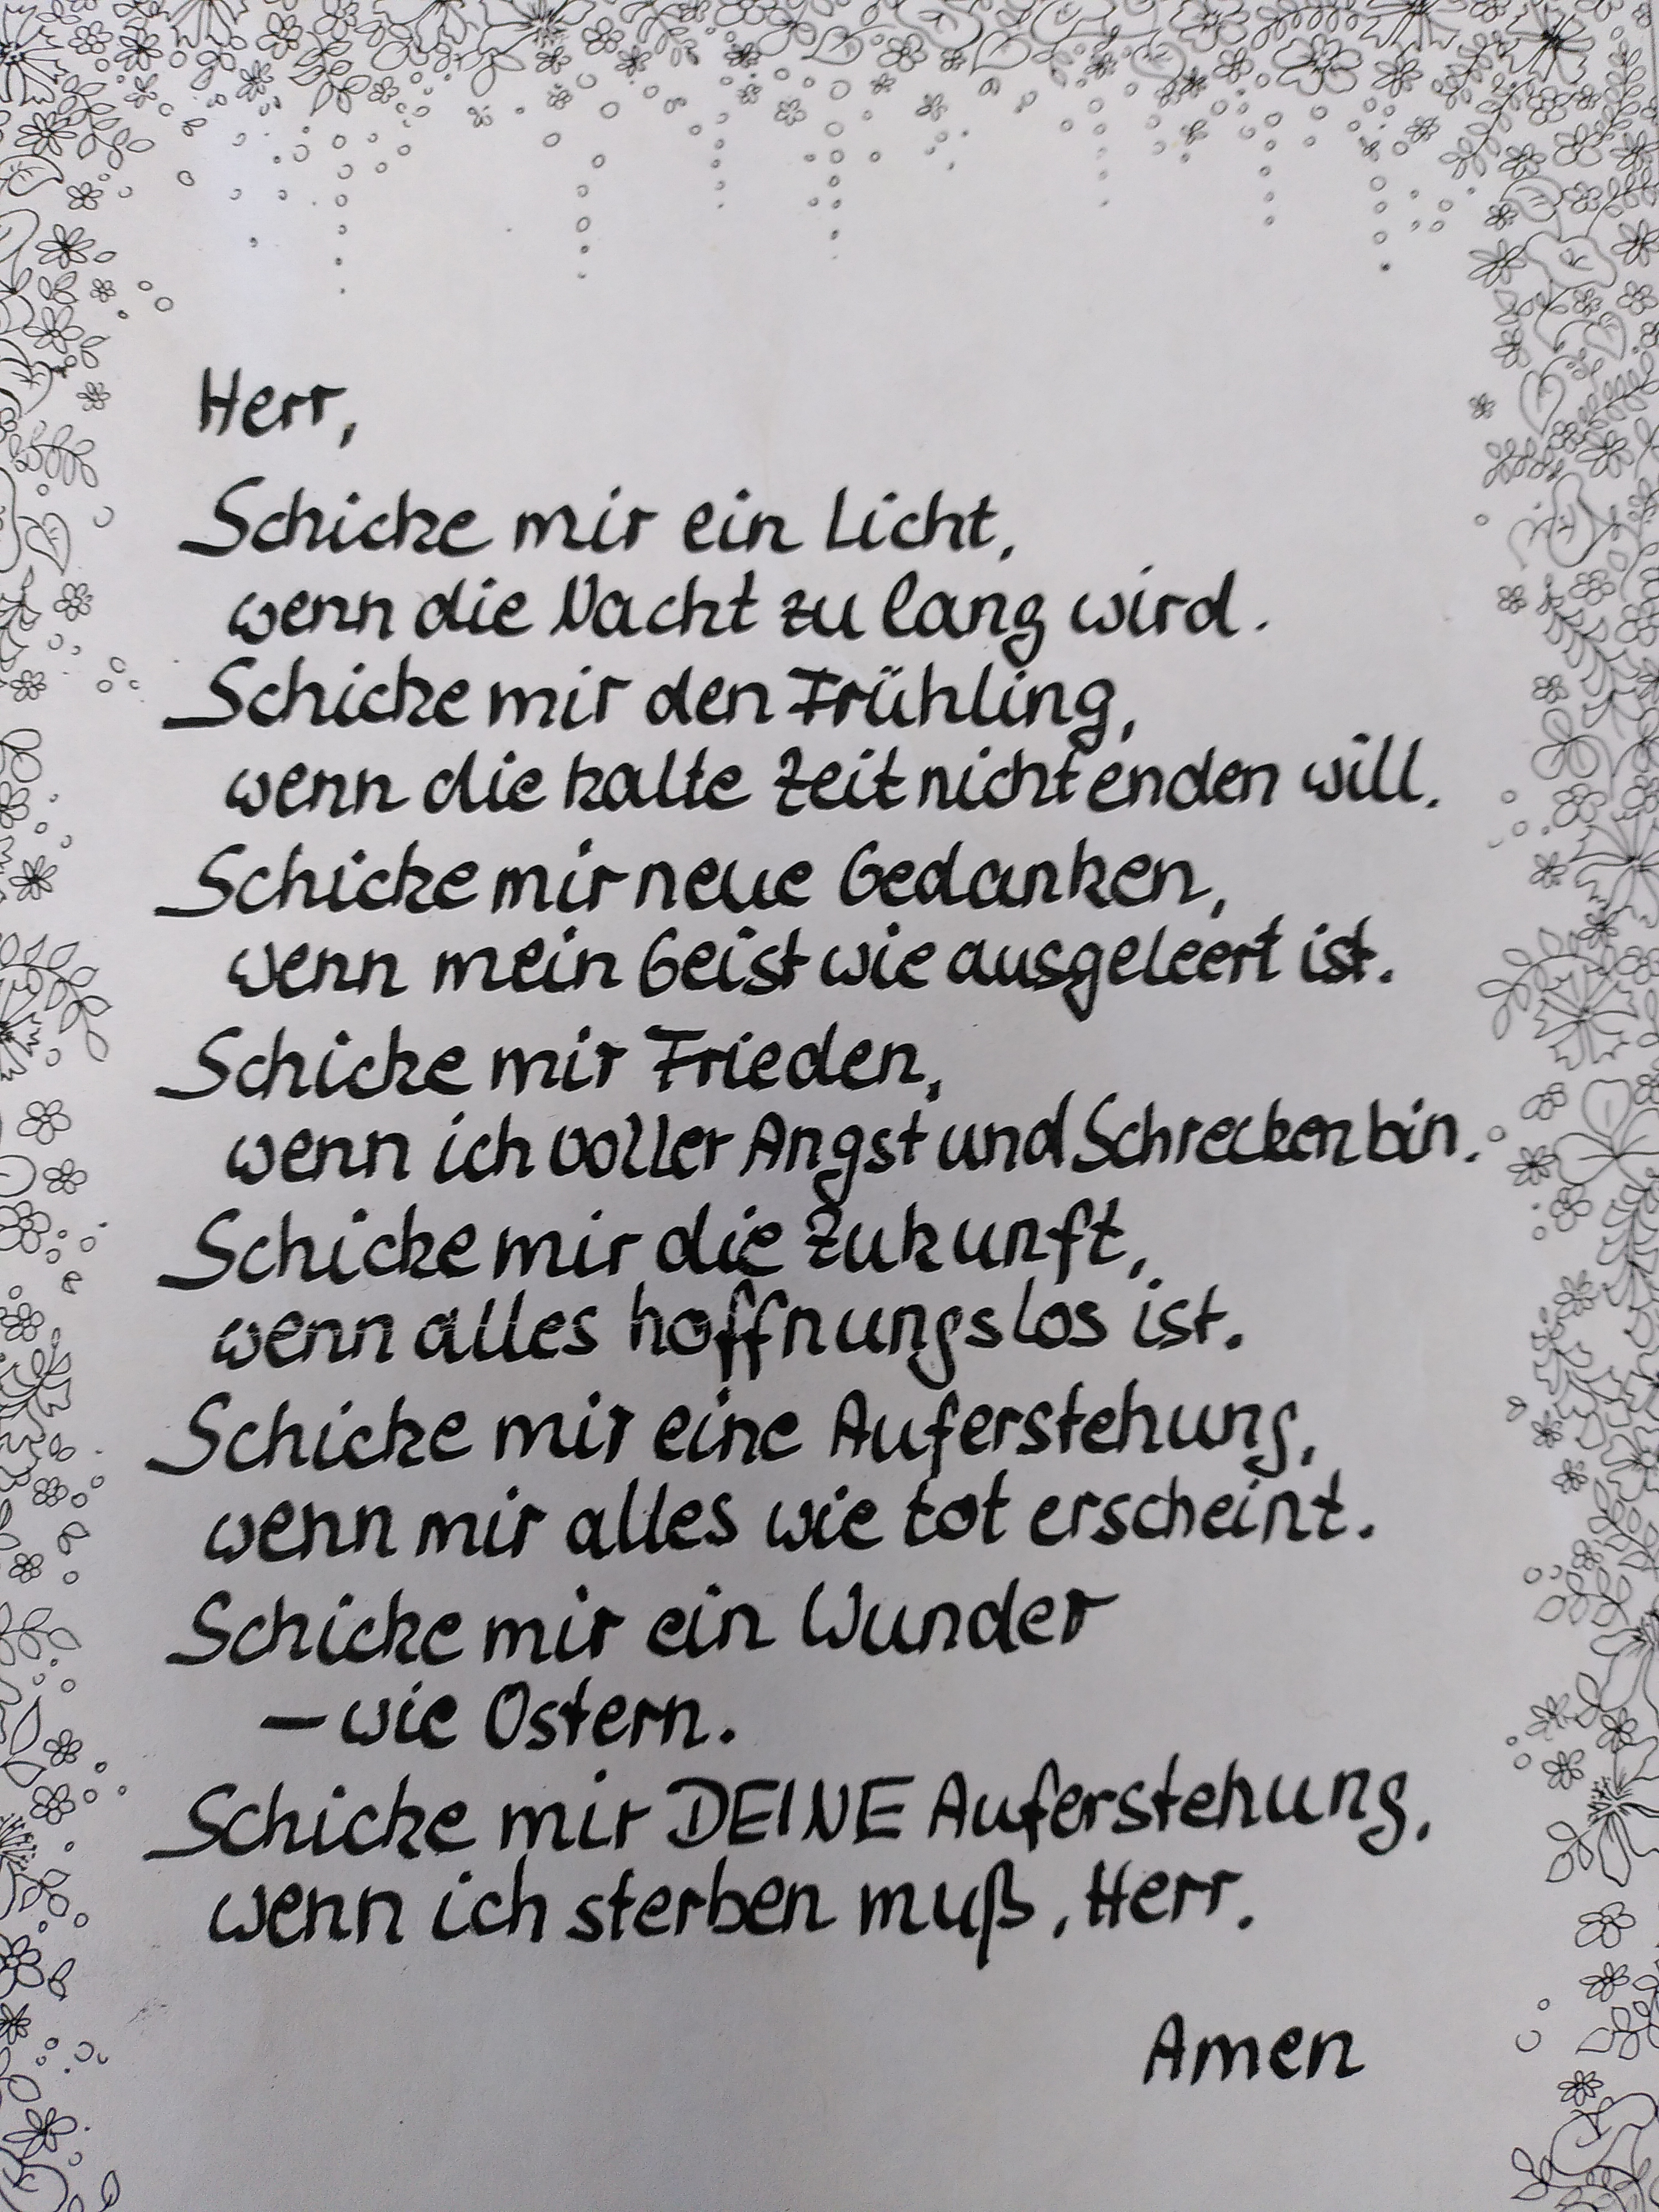 Herr,
Schicke mir ein Licht,
wenn die Nacht zu lang wird.
Schicke mir den Frühling,
wenn die kalte Zeit nicht enden will.
Schicke mir neue Gedanken,
wenn mein Geist wie ausgeleert ist.
Schicke mir Frieden,
wenn ich voller Angst und Schrecken bin.
Schicke mir die Zukunft,
wenn alles hoffnungslos ist.
Schicke mir eine Auferstehung,
wenn mir alles wie tot erscheint.
Schicke mir ein Wunder
– wie Ostern.
Schicke mir DEINE Auferstehung,
wenn ich sterben muß, Herr.
Amen